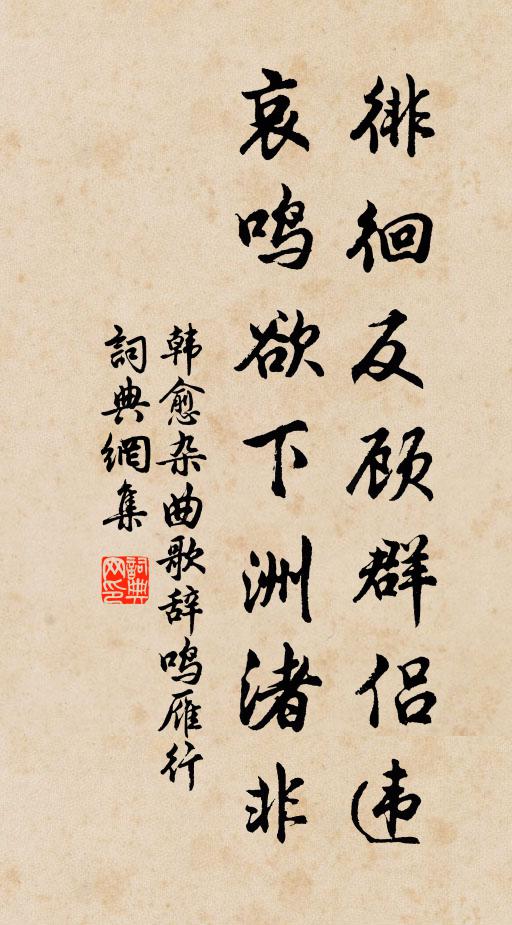 徘徊反顾群侣违
哀鸣欲下洲渚非
韩愈杂曲歌辞鸣雁行
詞典網集
詞典网印